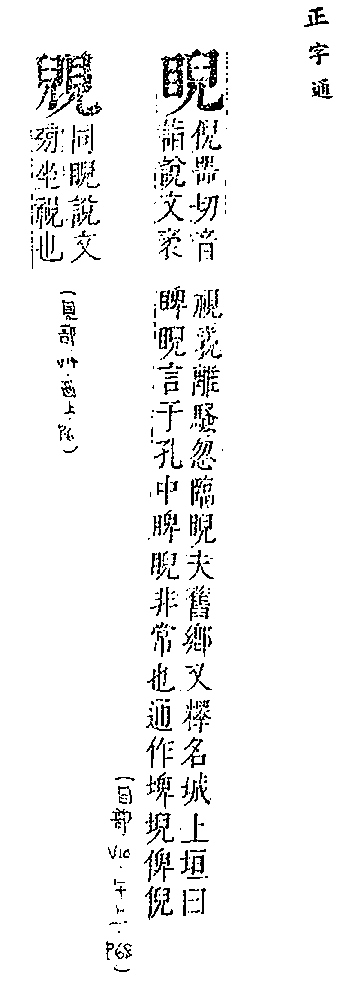 正字通
睨
倪器切音
詣說文衺
視離騷忽臨睨夫舊鄉又釋名城上垣曰
睥睨言于孔中睥睨非常也通作埤堄俾倪
(目部 V10·午上·P68)
同睨說文
旁坐視也
(見部 酉上·P6)